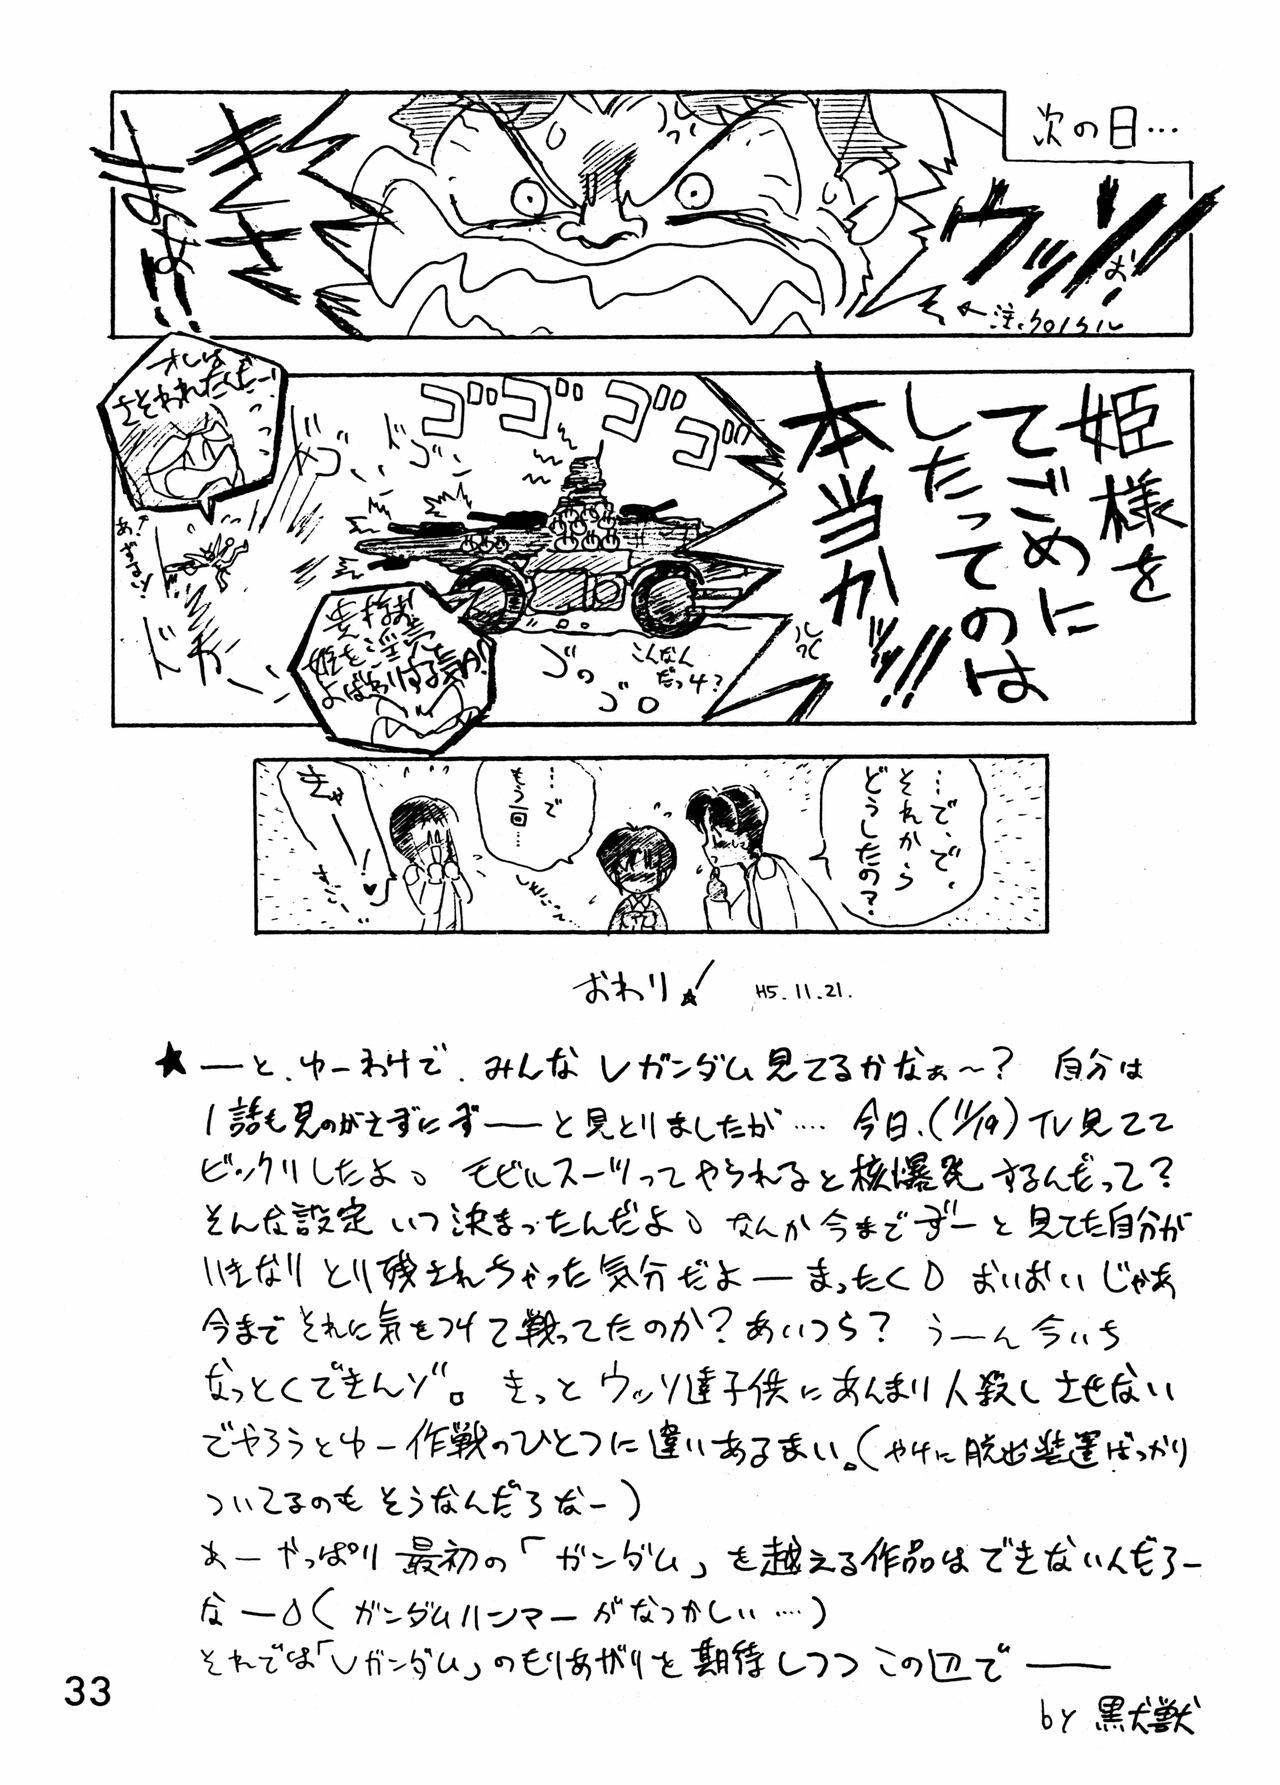 次の日…
ウッソ
お!
きさ
まぁ!!
←注.クロノクル
姫様を
てごめに
したってのは
本当かッ!!!
ゴゴゴゴ
オレは
さそわれたんだー!
貴様ぁ
姫を淫乱
よばわりする気か!
こんなん
だっけ?
ドカ
…で、で、
それから
どうしたの?
…で
もう一回…
きゃー!♥
おわり★!
H5.11.21.
★ ーと、ゆーわけで、みんなVガンダム見てるかなぁ〜? 自分は
1話も見のがさずにずーーと見とりましたが…. 今日、(11/19) TV見てて
ビックリしたよ。 モビルスーツってやられると核爆発するんだって?
そんな設定いつ決まったんだよ。なんか今までずーと見てた自分が
いきなりとり残されちゃった気分だよーまったく。おいおいじゃあ
今までそれに気をつけて戦ってたのか?あいつら? うーん今いち
なっとくできんゾ。きっとウッソ達子供にあんまり人殺しさせない
でやろうとゆー作戦のひとつに違いあるまい。(やけに脱出装置ばっかり
ついてるのもそうなんだろなー)
あーやっぱり最初の「ガンダム」を越える作品はできないんだろー
なー。(ガンダムハンマーがなつかしい…)
それでは「Vガンダム」のもりあがりを期待しつつこの辺でーー
by 黒犬獣
33